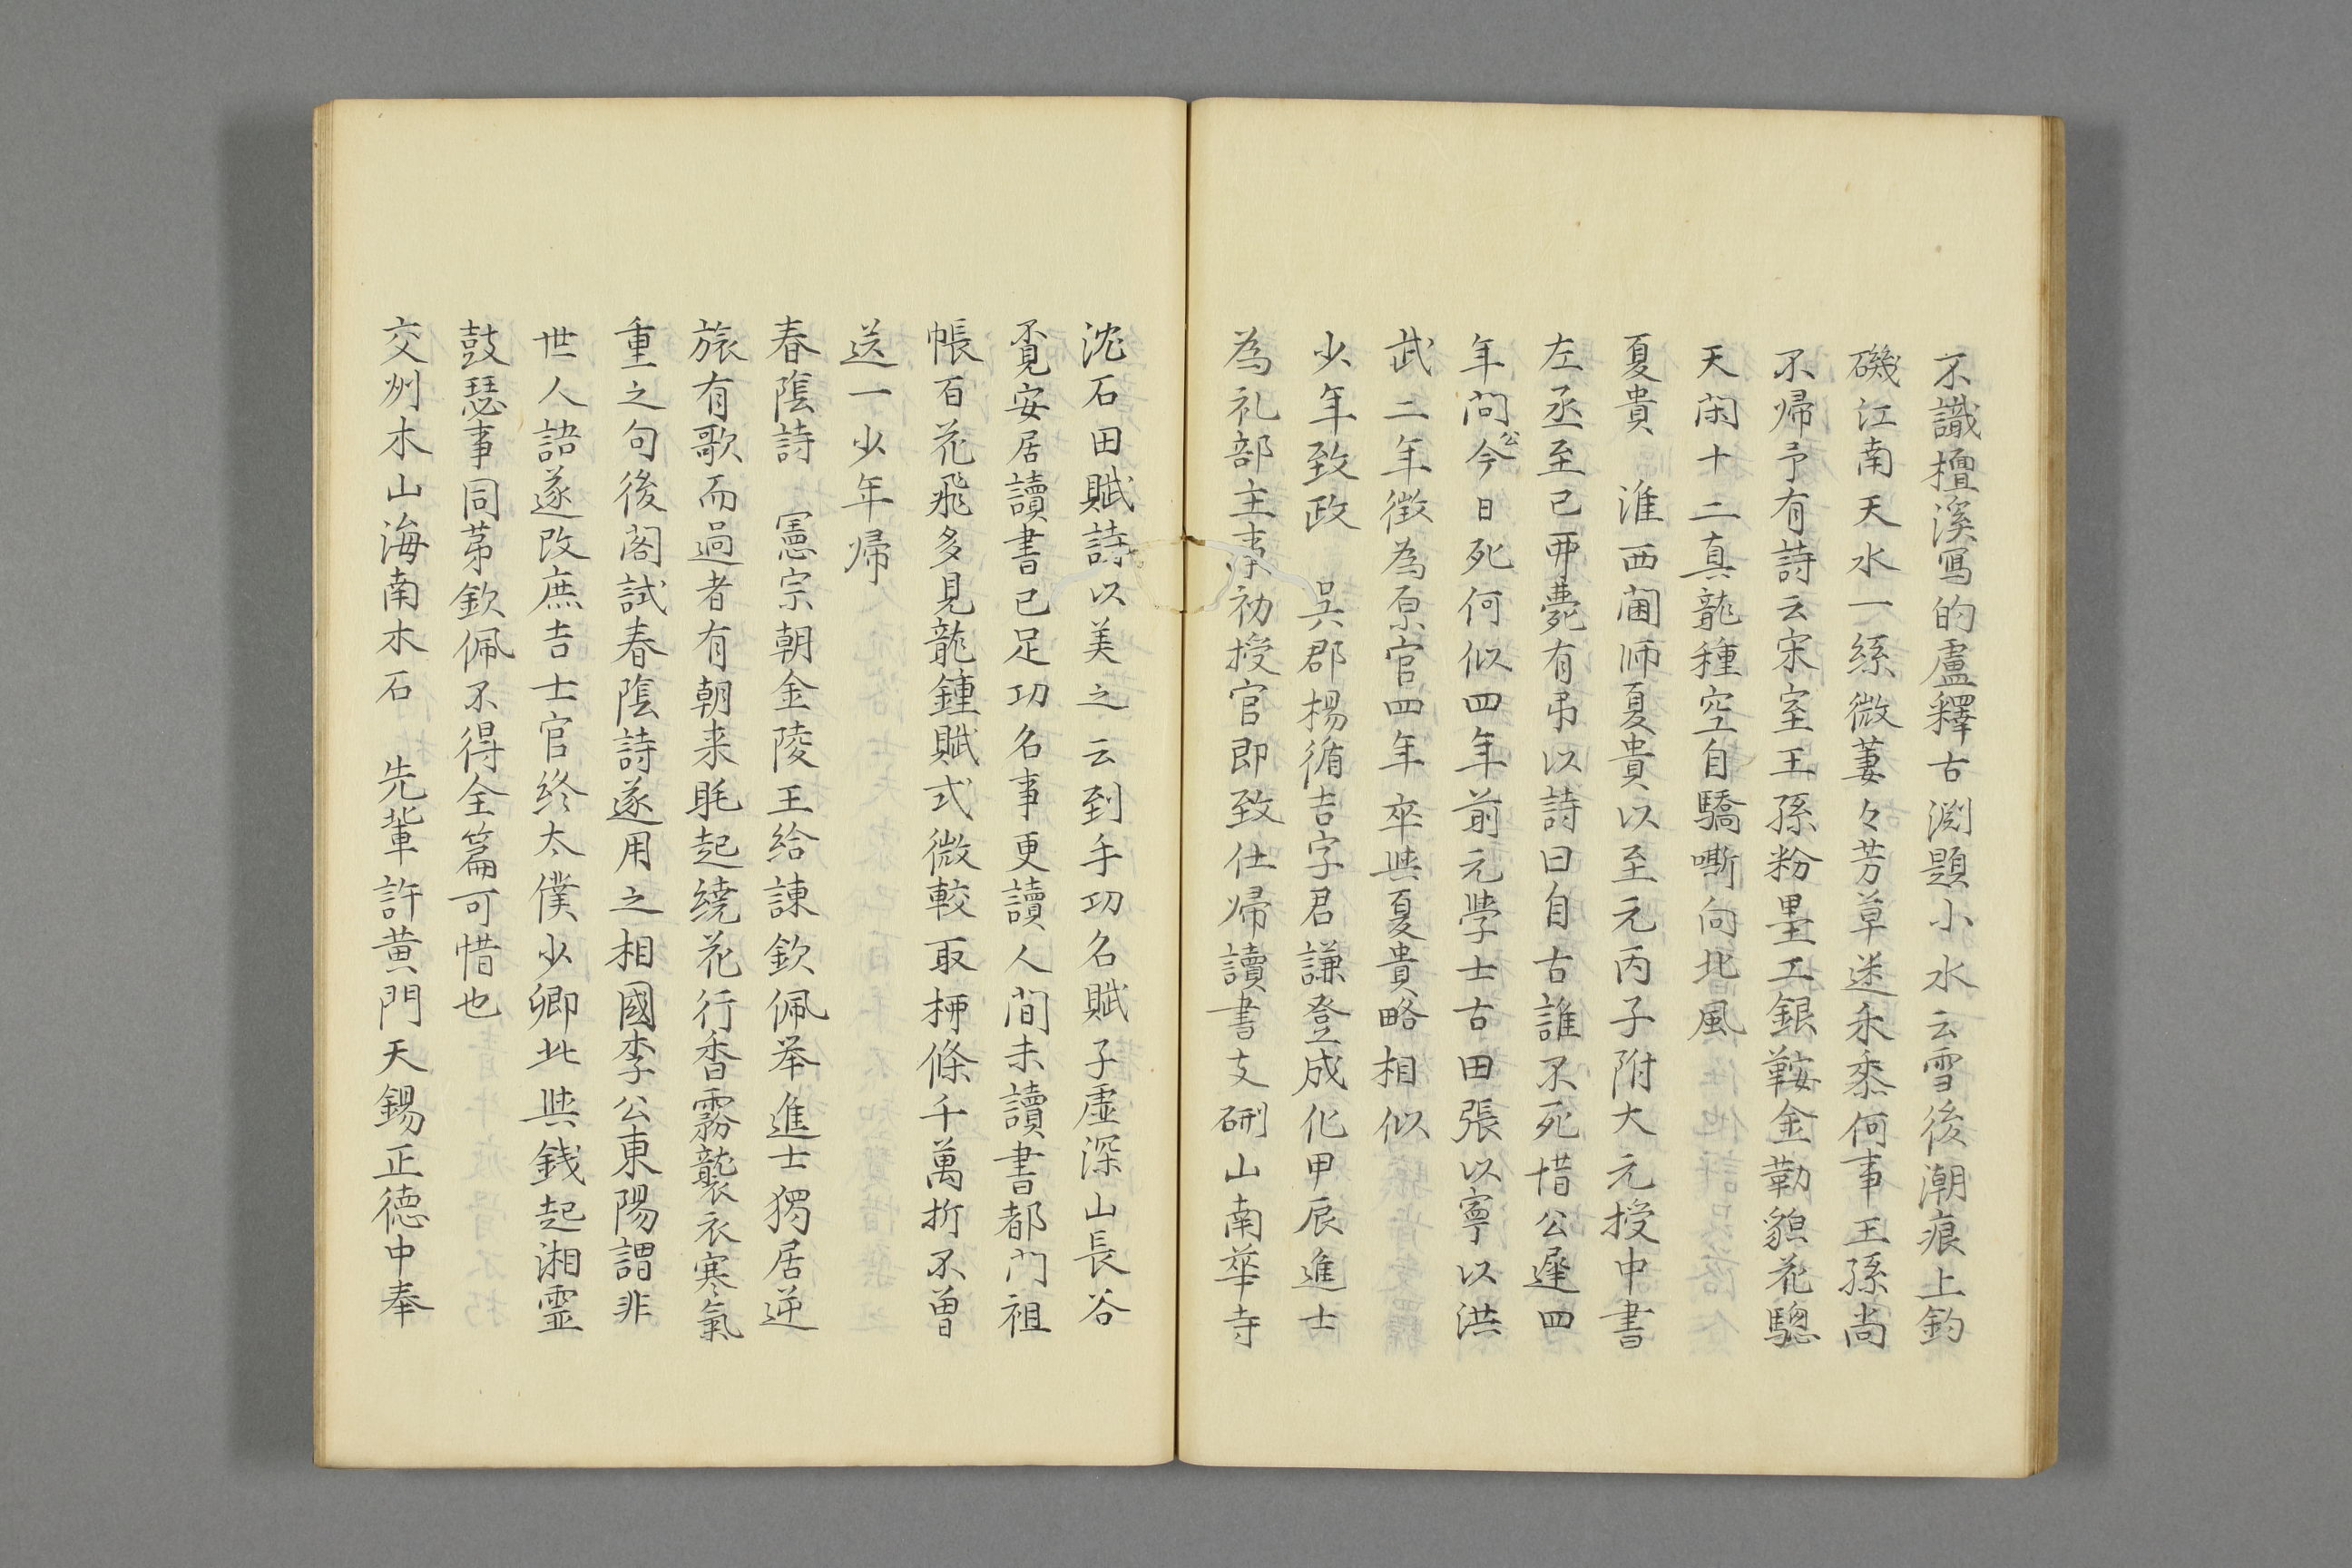 不識檀溪寫的盧釋古淵題小水云雪後潮痕上釣
磯江南天水一絲微萋々芳草迷禾黍何事王孫尚
不帰予有詩云宋室王孫粉墨工銀鞍金勒貌花驄
天閑十二真龍種空自驕嘶向北風
夏貴 淮西閫师夏貴以至元丙子附大元授中書
左丞至己夘薨有吊以詩曰自古誰不死惜公遲四
年问公今日死何似四年前元學士古田張以寧以洪
武二年徴為原官四年卒與夏貴略相似
少年致政 吳郡楊循吉字君謙登成化甲辰進士
為礼部主事初授官即致仕帰讀書支硎山南華寺
沈石田賦詩以美之云到手功名賦子虛深山長谷
覔安居讀書已足功名事更讀人间未讀書都门祖
帳百花飛多見龍鍾賦式微較取栁條千萬折不曽
送一少年帰
春陰詩 憲宗朝金陵王給諌欽佩举進士獨居逆
旅有歌而過者有朝来眊起繞花行香霧襲衣寒氣
重之句後阁試春陰詩遂用之相國李公東陽謂非
世人語遂改庶吉士官终太僕少卿此與銭起湘霊
鼓瑟事同苐欽佩不得全篇可惜也
交州木山海南木石 先輩許黄門天錫正德中奉